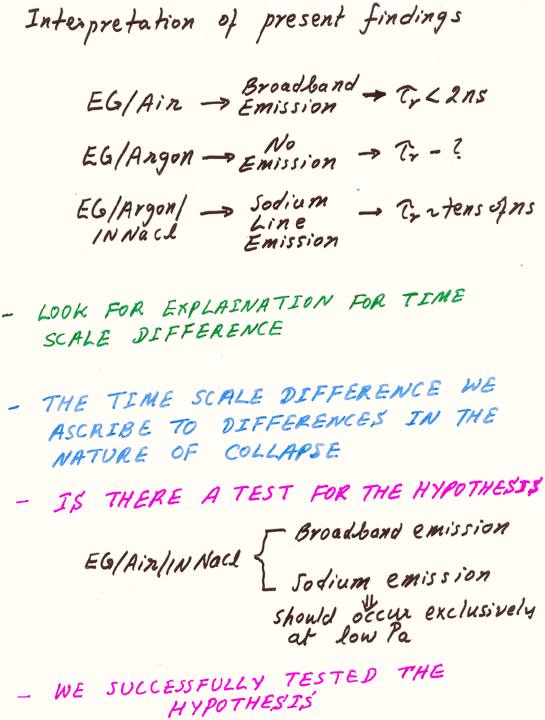 Interpretation of present findings
EG/Air → Broadband Emission → τr < 2ns
EG/Argon → No Emission → τr - ?
EG/Argon/1N NaCl → Sodium Line Emission → τr ~ tens of ns
- LOOK FOR EXPLAINATION FOR TIME
SCALE DIFFERENCE
- THE TIME SCALE DIFFERENCE WE
ASCRIBE TO DIFFERENCES IN THE
NATURE OF COLLAPSE
- IS THERE A TEST FOR THE HYPOTHESIS
EG/Air/1N NaCl { Broadband emission
Sodium emission
⇓
should occur exclusively
at low Pa
- WE SUCCESSFULLY TESTED THE
HYPOTHESIS